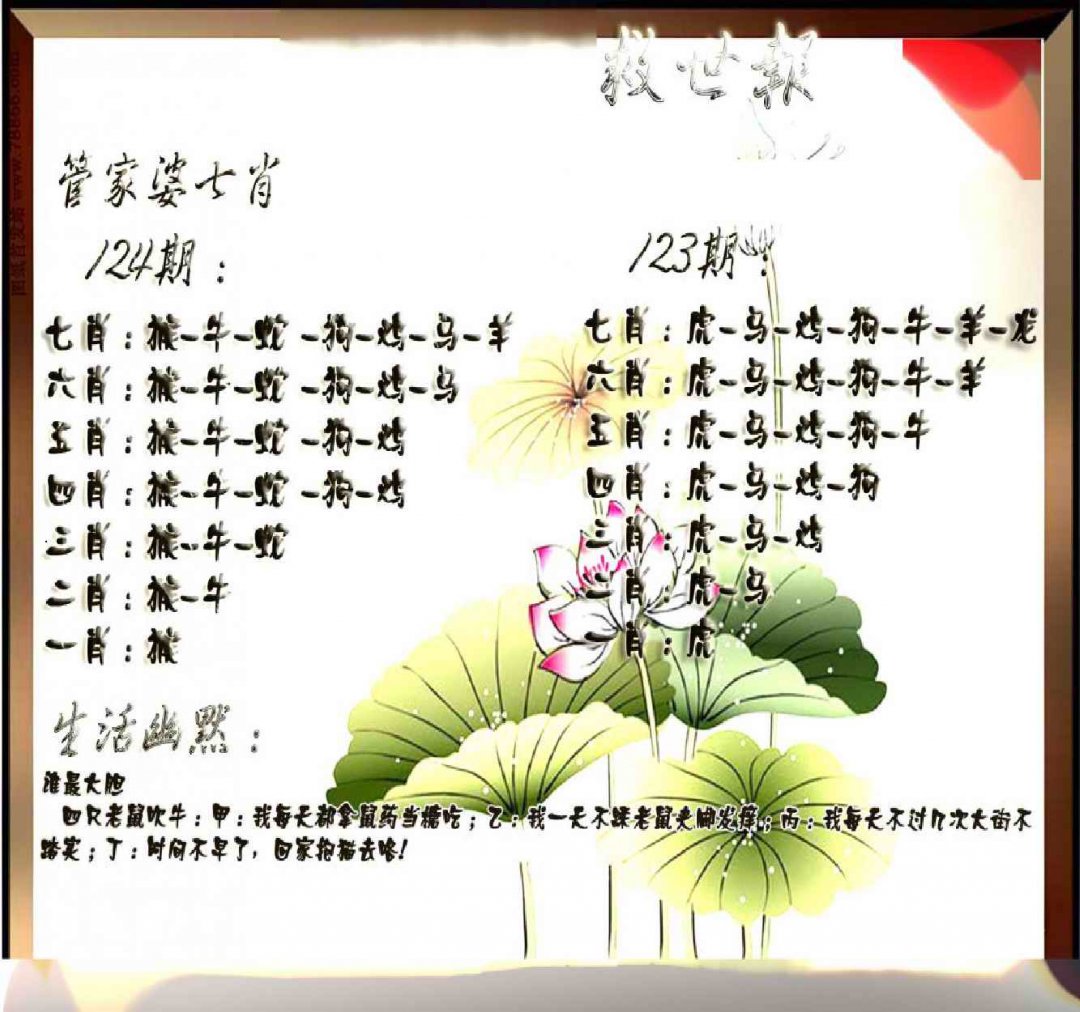 救世報
管家婆七肖
124期：
七肖：猴-牛-蛇 -狗-鸡-马-羊
六肖：猴-牛-蛇 -狗-鸡-马
五肖：猴-牛-蛇 -狗-鸡
四肖：猴-牛-蛇 -狗-鸡
三肖：猴-牛-蛇
二肖：猴-牛
一肖：猴
123期：
七肖：虎-马-鸡-狗-牛-羊-龙
六肖：虎-马-鸡-狗-牛-羊
五肖：虎-马-鸡-狗-牛
四肖：虎-马-鸡-狗
三肖：虎-马-鸡
二肖：虎-马
一肖：虎
生活幽默：
谁最大胆
四只老鼠吹牛：甲：我每天都拿鼠药当糖吃；乙：我一天不踩老鼠夹脚发痒；丙：我每天不过几次大街不
踏实；丁：时间不早了，回家抱猫去咯！